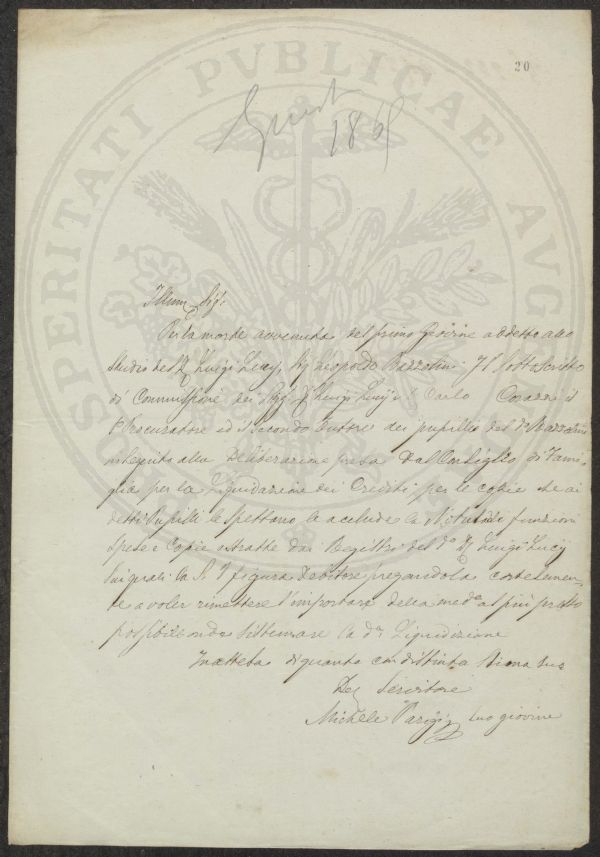 20
1869
PROSPERITATI PVBLICAE AVGENDAE
Illmo Sigr
Per la morte avvenuta del primo giovine addetto allo
Studio del Dr Luigi Lucij, Sig Leopoldo Bazzolini Il Sottoscritto
di Commissione dei Sigg Dr Luigi Lucij e Carlo Corazzi il
1o Procuratore ed il secondo Tutore dei pupilli del do Bazzolini
in seguito alla Deliberazione presa dal Consiglio di Fami-
glia per la Liquidazione dei Crediti per le copie che ai
detti Pupilli le spettano le acclude la Nota di funzioni
spese e Copie estratte dai Registri del do Dr Luigi Lucij
sui quali la S. V. figura debitore pregandola cortesemen-
te a voler rimettere l'importare della meda al più presto
possibile onde ultimare la da Liquidizione
In attesa di quanto con distinta stima suo
Dev Servitore
Michele Parigi suo giovine